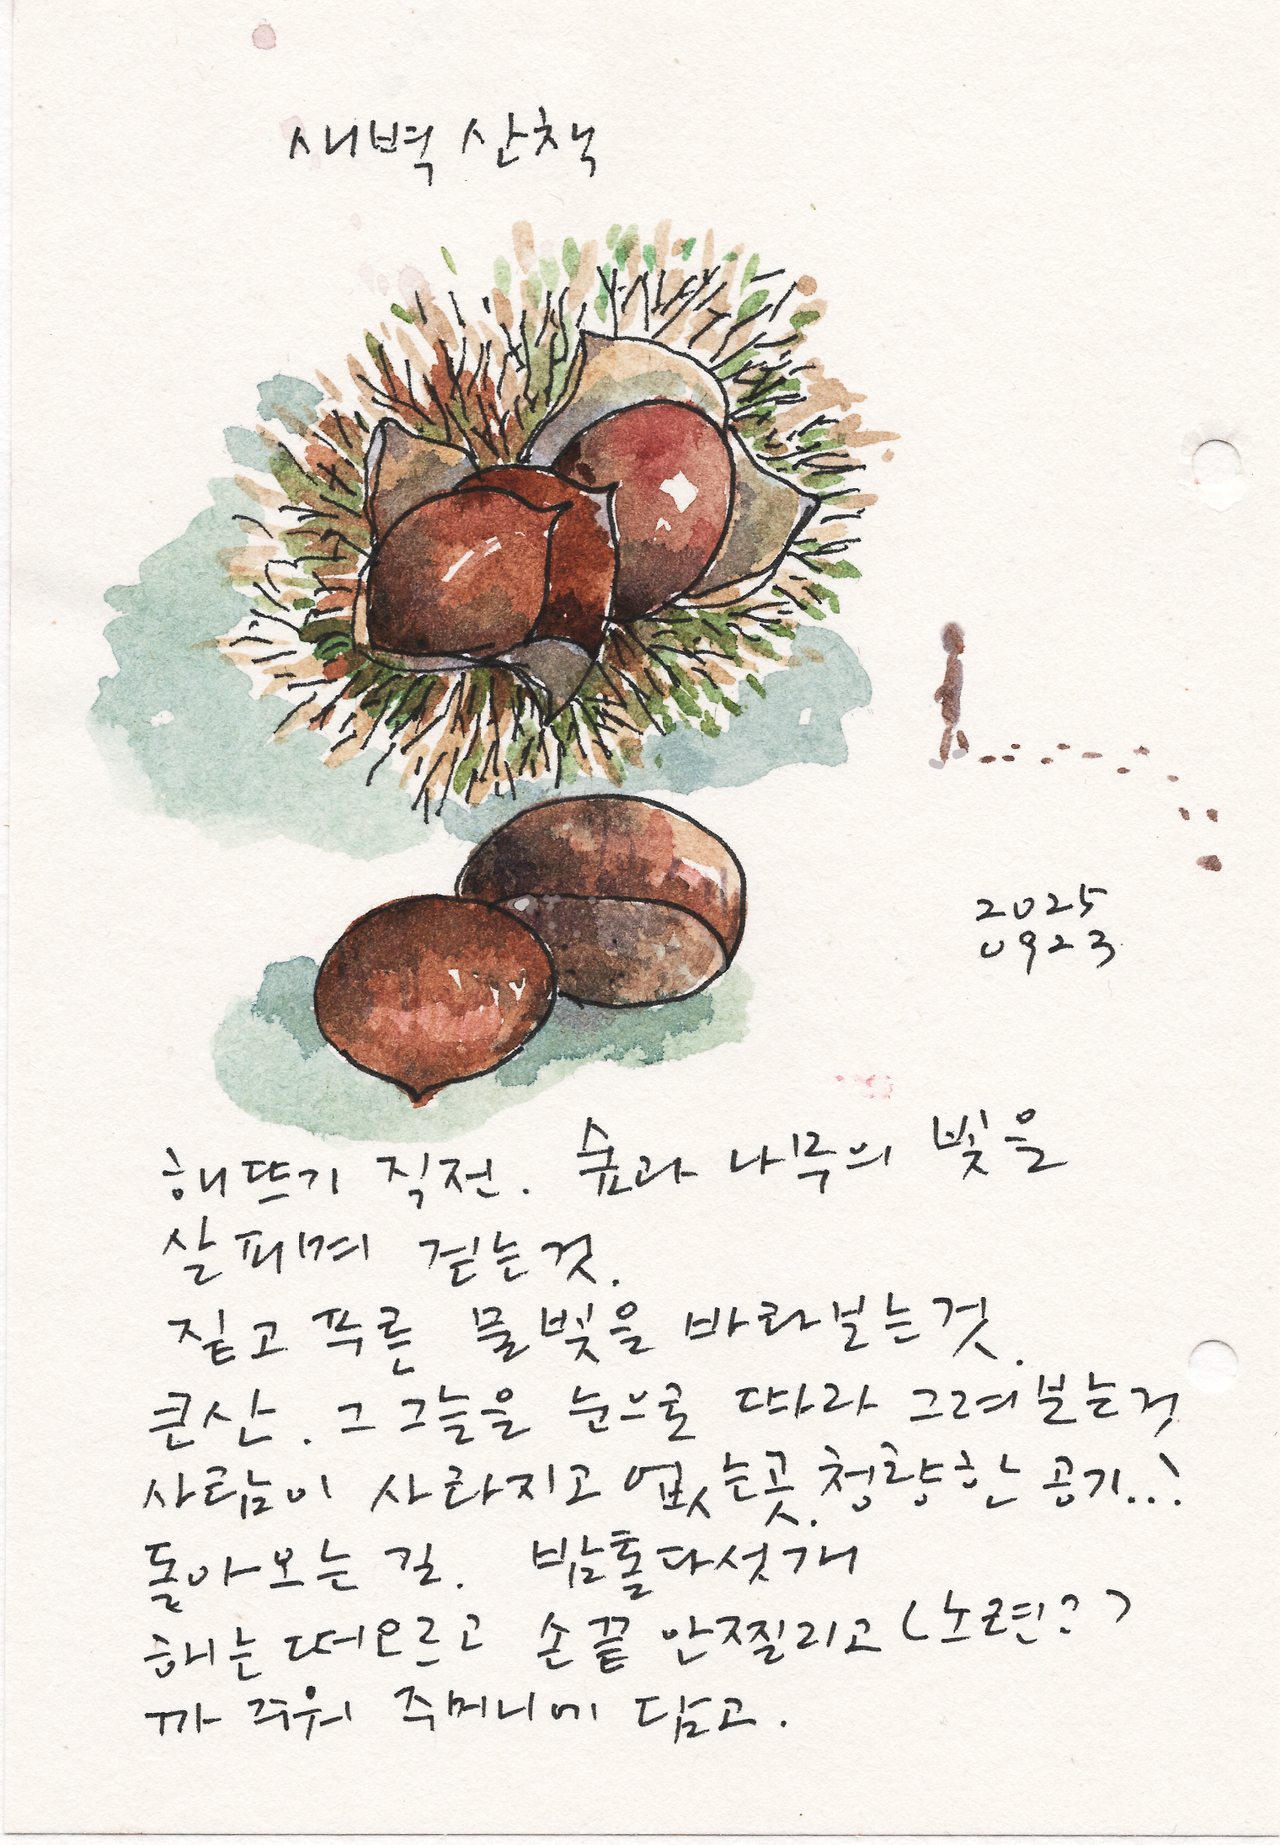 새벽 산책
2025
0923
해뜨기 직전. 숲과 나무의 빛을
살피며 걷는것.
짙고 푸른 물빛을 바라보는것.
큰산. 그 그늘을 눈으로 따라 그려보는것
사람이 사라지고 없는곳. 청량한 공기..!
돌아오는 길. 밤톨다섯개
해는 떠오르고 손끝 안찔리고 (노련?)
까 주워 주머니에 담고.